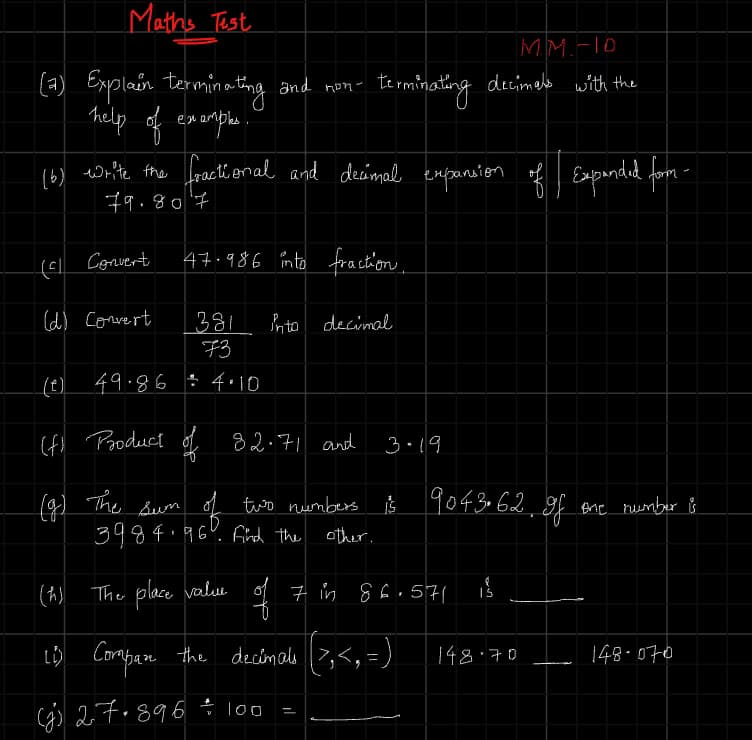 Maths Test
M.M.-10
(a) Explain terminating and non-terminating decimals with the
help of examples.
(b) Write the fractional and decimal expansion of / Expanded form-
79.807
(c) Convert 47.986 into fraction.
(d) Convert 381/73 into decimal
(e) 49.86 ÷ 4.10
(f) Product of 82.71 and 3.19
(g) The sum of two numbers is 9043.62. If one number is
3984.96. Find the other.
(h) The place value of 7 in 86.571 is ____
(i) Compare the decimals (>,<,=) 148.70 ___ 148.070
(j) 27.896 ÷ 100 = ____